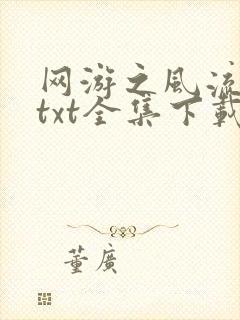 网游之风流
txt全集下载
董廣